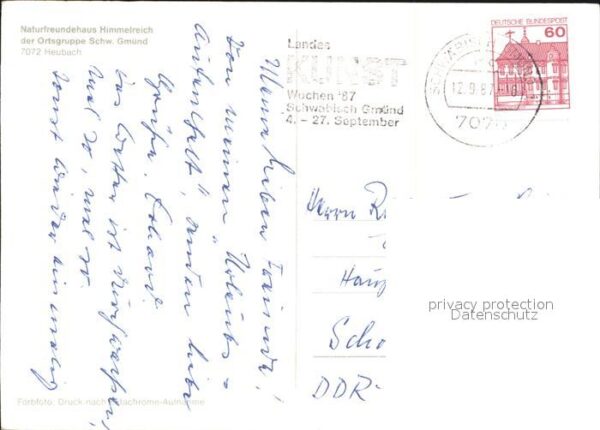 Naturfreundehaus Himmelreich
der Ortsgruppe Schw. Gmünd
7072 Heubach
Landes
KUNST
Wochen '87
Schwäbisch Gmünd
4. - 27. September
DEUTSCHE BUNDESPOST
60
12.9.87
707
Meine lieben Freunde!
Von meinem "Urlaubs-
aufenthalt" senden liebe
Grüße,
Das Wetter ist durchwachsen,
mal so, mal so.
sonst wieder einmalig
Herrn
Scho
DDR-
privacy protection
Datenschutz
Farbfoto: Druck nach Ektachrome-Aufnahme